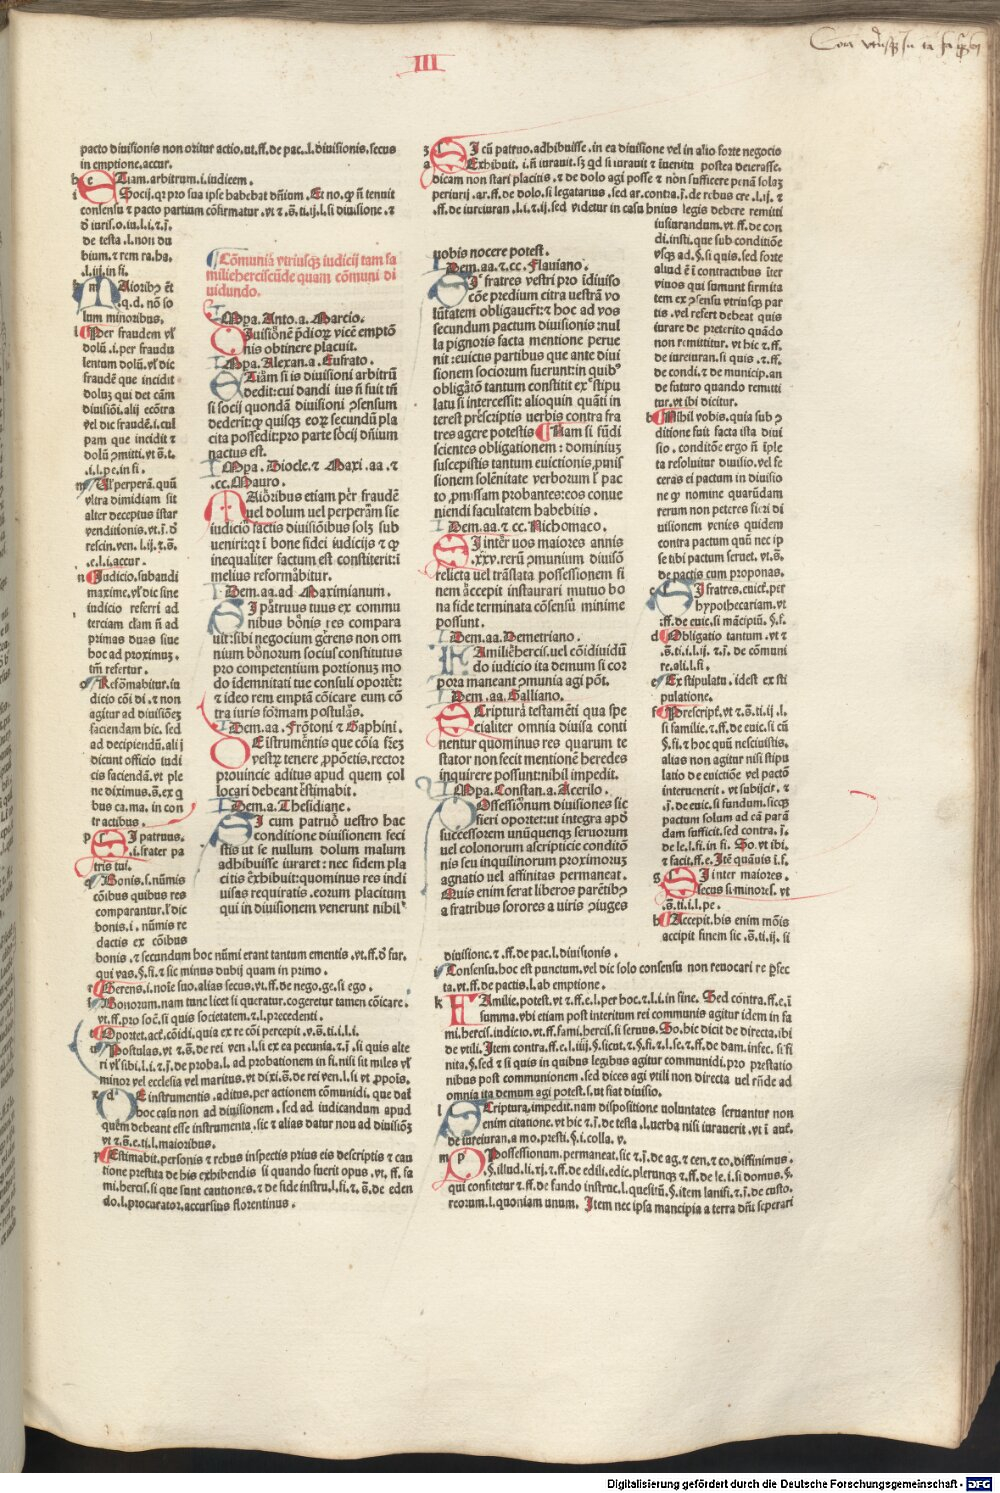 III
pacto diuisionis non oritur actio.ut.ff.de pac..l.diuisionis.secus
in emptione.accur.
Tiam.arbitrum.i.iudicem.
Socij.qr pro sua ipse habebat dñium. Et no.ꝙ ñ tenuit
consensu ⁊ pacto partium cõfirmatur.vt ⁊.s̃.ti.ij.l.si diuisione.⁊
de testa.l.non du
bium.⁊ rem ra.ha.
.l.iij.in fi.
m Aioribꝫ ẽt
.q.d. nõ so
lum minoribus.
Per fraudem vl̓
dolũ.i.per fraudu
lentum dolũ.vl̓ dic
fraudẽ que incidit
doluꝫ qui det cãm
diuisiõi.alij ecõtra
vel dic fraudẽ.i.cul
pam que incidit ⁊
.i.l.pe.in fi.
Vel perperã.quũ
vltra dimidiam sit
alter deceptus istar
venditionis.vt.j.d̓
rescin.ven.l.ij.⁊.s̃.
e.l.i.accur.
n Iudicio.subaudi
maxime.vl̓ dic sine
iudicio referri ad
terciam clam ñ ad
primas duas siue
hoc ad proximuꝫ.
tm̃ refertur.
o Refõmabitur.in
dicio cõi di.⁊ non
agitur ad diuisiõeꝫ
faciendam hic.sed
ad decipiendũ.alij
dicunt officio iudi
cis faciendã.vt ple
ne diximus.s̃.ex q
bus ca.ma.in con
tractibus.
p Si patruus.
.i.frater pa
tris tui.
q Bonis.s.nũmis
cõibus quibus res
comparantur.l̓ dic
bonis.i.nũmis re
dactis ex cõibus
bonis.⁊ secundum hoc nũmi erant tantum ementis.vt.ff.d̓ fur.
qui vas.§.fi.⁊ sic minus dubij quam in primo.
r Gerens.i.noĩe suo.alias secus.vt.ff.de nego.ge.si ego.
s Bonorum.nam tunc licet si queratur.cogeretur tamen cõicare.
vt.ff.pro soc̃.si quis societatem.⁊.l.precedenti.
t Oportet.act̃.cõidi.quia ex re cõi percepit.v.s̃.ti.i.l.i.
u Postulas.vt ⁊.s̃.de rei ven.l.si ex ea pecunia.⁊.j.si quis alte
ri vl̓ sibi.l.i.⁊.j.de proba.l.ad probationem in fi.nisi sit miles vl̓
minor vel ecclesia vel maritus.vt dixi.s̃.de rei ven.l.si vt ꝓpoĩs.
x d E instrumentis.aditus.per actionem cõmunidi.que dat̃
hoc casu non ad diuisionem.sed ad iudicandum apud
quem debeant esse instrumenta.sic ⁊ alias datur non ad diuisiõꝫ
vt ⁊.s̃.e.ti.l.maioribus.
y Estimabit.personis ⁊ rebus inspectis prius eis descriptis ⁊ cau
tione prestita de his exhibendis si quando fuerit opus.vt.ff.fa
mi.hercis.si que sunt cautiones.⁊ de fide instru.l.fi.⁊.s̃.de eden
do.l.procurator.accursius florentinus.
Cõmuniã vtriusqꝫ iudicij tam fa
milieherciscũde quam cõmuni di
uidundo.
Impa.Anto.a.Marcio.
Diuisionẽ p̃dioꝝ vicẽ emptõ
nis obtinere placuit.
Impa.Alexan.a.Eufrato.
Etiam si is diuisioni arbitrũ
dedit:cui dandi ius ñ fuit tñ
si socij quondã diuisioni ɔsensum
dederit:ꝙ quisqꝫ eoꝝ secundũ pla
cita possedit:pro parte socij dñium
nactus est.
Impa.Diocle.⁊ Maxi.aa.⁊
.cc.Mauro.
Maioribus etiam per fraudẽ
uel dolum uel perperam sie
iudicio factis diuisiõibus solꝫ sub
ueniri:qr ĩ bone fidei iudicijs ⁊ ꝙ
inequaliter factum est constiterit:ĩ
melius reformabitur.
Idem.aa.ad Maximianum.
Si patruus tuus ex commu
nibus bonis res compara
uit:sibi negocium gerens non om
nium bonorum socius constitutus
pro competentium portionuꝫ mo
do idemnitati tue consuli oportet:
⁊ ideo rem emptã cõicare eum cõ
tra iuris formam postulas.
Idem.aa.Frontoni ⁊ Saphini.
De istrumentis que cõia frẽꝫ
vestrꝫ tenere ꝓpõetis.rector
prouincie aditus apud quem col
locari debeant estimabit.
Idem.a.Thesidiane.
Si cum patruo uestro hac
conditione diuisionem feci
stis ut se nullum dolum malum
adhibuisse iuraret:nec fidem pla
citis exhibuit:quominus res indi
uisas requiratis.eorum placitum
qui in diuisionem venerunt nihil
z Si cũ patruo.adhibuisse.in ea diuisione vel in alio forte negocio
a Exhibuit.i.ñ iurauit.sꝫ qd si iurauit ⁊ ĩuenitu postea deierasse.
dicam non stari placitis.⁊ de dolo agi posse ⁊ nõ sufficere penã solaꝫ
periurij.ar.ff.de dolo.si legatarius.sed ar.contra.j.de rebus cre.l.ij.⁊
.ff.de iureiuran.l.i.⁊ ij.sed videtur in casu huius legis debere remitti
uobis nocere potest.
Idem.aa.⁊.cc.Flauiano.
Si fratres vestri pro idiuiso
cõe predium citra uestrã vo
lũtatem obligauert̃:⁊ hoc ad vos
secundum pactum diuisionis:nul
la pignoris facta mentione perue
nit:euictis partibus que ante diui
sionem sociorum fuerunt:in quibꝰ
obligatõ tantum constitit ex stipu
latu si intercessit:alioquin quãti in
terest prescriptis uerbis contra fra
tres agere potestis Nam si fũdi
scientes obligationem:dominiuꝫ
suscepistis tantum euictionis ꝓmis
sionem solenitate verborum l̓ pac
to ꝓmissam probantes:eos conue
niendi facultatem habebitis.
Idem.aa.⁊ cc.Nichomaco.
Si inter uos maiores annis
.xxv.rerũ ɔmunium diuisõ
relicta uel trãslata possessionem si
nem accepit instaurari mutuo bo
na fide terminata cõsensũ minime
possunt.
Idem.aa.Demetriano.
Familiehercis.uel cõidiuidũ
do iudicio ita demum si cor
pora maneant ɔmunia agi põt.
Idem.aa.Salliano.
Scriptura testamẽti qua spe
cialiter omnia diuisa conti
nentur quominus res quarum te
stator non fecit mentionẽ heredes
inquirere possunt:nihil impedit.
Impa.Constan.a.Acerilo.
Possessionum diuisiones sic
fieri oportet:ut integra apd̓
successorem unũquenqꝫ seruorum
uel colonorum ascripticie conditõ
nis seu inquilinorum proximoruꝫ
agnatio uel affinitas permaneat.
Quis enim ferat liberos parẽtibꝫ
a fratribus sorores a uiris ɔiuges
iusiurandum.vt.ff.de con
di.insti.que sub conditiõe
vsqꝫ ad.§.si quis.sed forte
aliud ẽ ĩ contractibus ĩter
viuos qui sumunt firmita
tem ex ɔsensu vtriusqꝫ par
tis.vel refert debeat quis
iurare de preterito quãdo
non remittitur.vt hic ⁊.ff.
de iureiuran.si quis.⁊.ff.
de condi.⁊ de municip.an
de futuro quando remitti
tur.vt ibi dicitur.
b Nihil vobis.quia sub ɔ
ditione fuit facta ista diui
sio.conditõe ergo ñ iple
ta resoluitur diuisio.vel fe
ceras ei pactum in diuisio
ne ꝙ nomine quarũdam
rerum non peteres fieri di
uisionem venies quidem
contra pactum quũ nec ip
se tibi pactum seruet.vt.s̃.
de pactis cum proponas.
c Si fratres.euict̃.per
hypothecariam.vt
.ff.de euic.si mãcipiũ.§.fi.
d Obligatio tantum.vt ⁊
.s̃.ti.i.l.ij.⁊.j.de cõmuni
re.ali.l.fi.
e Ex stipulatu.idest ex sti
pulatione.
f Prescript̃.vt ⁊.s̃.ti.ij.l.
si familie.⁊.ff.de euic.si cũ
§.fi.⁊ hoc quũ nesciuistis.
alias non agitur nisi stipu
latio de euictiõe vel pactõ
interuenerit.vt subijcit.⁊
.j.de euic.si fundum.sicqꝫ
pactum solum ad eã parã
dam sufficit.sed contra.j.
de le.l.fi.in fi. So.vt ibi.
⁊ facit.ff.e.Itẽ quãuis l.f.
g Si inter maiores.
secus si minores.vt
.s̃.ti.i.l.pe.
h Accepit.his enim mõis
accipit finem sic.s̃.ti.ij.si
diuisione.⁊.ff.de pac.l.diuisionis.
i Consensu.hoc est punctum.vel dic solo consensu non reuocari re ꝑfec
ta.vt.ff.de pactis.l.ab emptione.
k Familie.potest.vt ⁊.ff.e.l.per hoc.⁊.l.i.in fine. Sed contra.ff.e.ĩ
summa.vbi etiam post interitum rei communis agitur idem in fa
mi.hercis.iudicio.vt.ff.fami.hercis.si seruus.So.hic dicit de directa.ibi
de vtili.Item contra.ff.e.l.iiij.§.sicut.⁊.§.fi.⁊.l.se.⁊.ff.de dam.infec.si fi
nita.§.sed ⁊ si quis in quibus legibus agitur communidi.pro prestatio
nibus post communionem.sed dices agi vtili non directa uel rñde ad
omnia ita demum agi potest.s.ut fiat diuisio.
l Scriptura.impedit.nam dispositione voluntates seruantur non
enim citatione.vt hic ⁊.j.de testa.l.uerba nisi iurauerit.vt ĩ aut̃.
de iureiuran.a mo.presti.§.i.colla.v.
m p Possessionum.permaneat.sic ⁊.j.de ag.⁊ cen.⁊ co.diffinimus.
.§.illud.li.xj.⁊.ff.de edili.edic.plerunqꝫ ⁊.ff.de le.i.si domus.§.
qui confitetur ⁊.ff.de fundo instruc.l.quesitũ.§.item lanifi.⁊.j.de custo.
reorum.l.quoniam unum. Item nec ipsa mancipia a terra dñi seperari
Digitalisierung gefördert durch die Deutsche Forschungsgemeinschaft - DFG